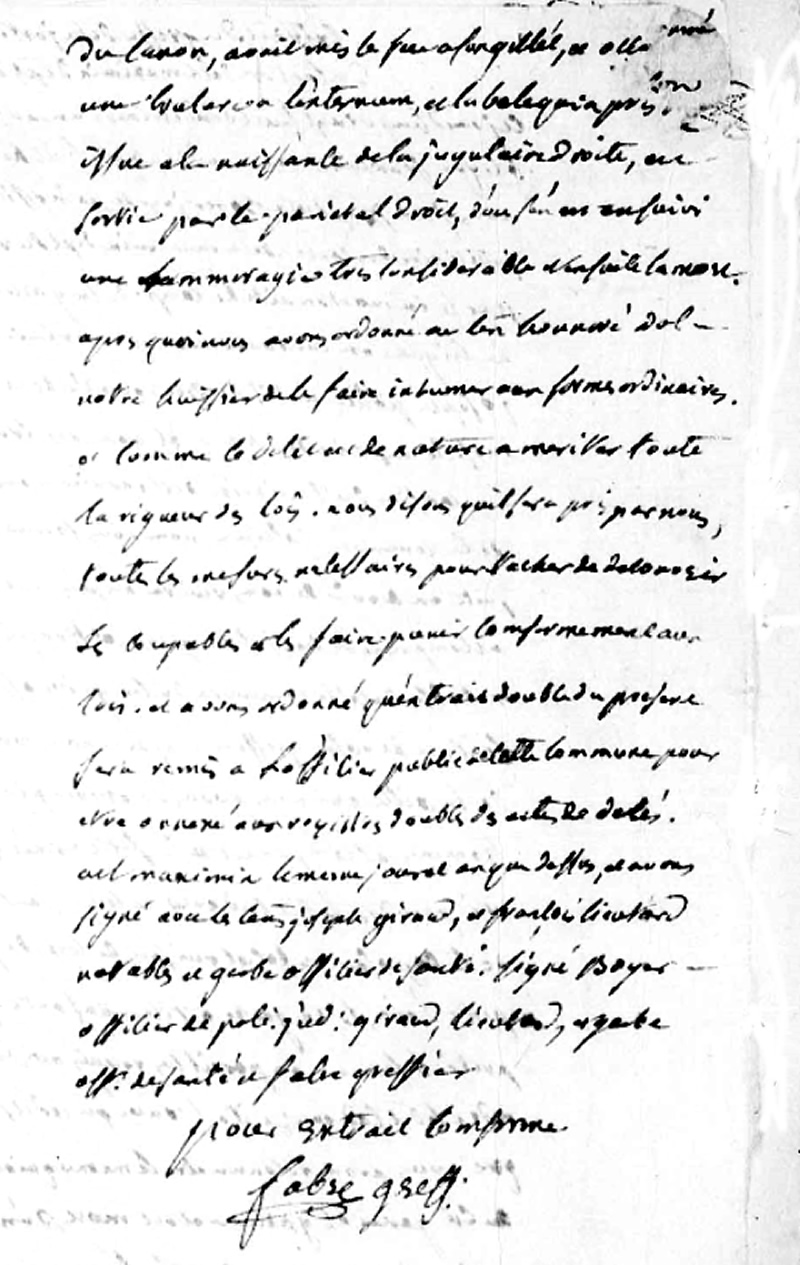 du canon, avait mis le feu a son gillét, et
une à l'internum, et la bale qui a pris son
issue a la naissance de la jugulaire droite, est
sortie par le parietal droit, d'ou s'én est ensuivi
une hemmoragie tres considerable et ensuite la mort.
apres quoi nous avons ordonné au cen honnoré dol
notre huissier de le faire inhumer aux formes ordinaires.
et comme le delit est de nature a meriter toute
la rigueur des lois. nous disons quil sera pris par nous,
toutes les mesures necessaires pour tacher de
les coupables et les faire punir conformement aux
lois. et avons ordonné qu'én trait double du present
sera remis a l'officier public de cette commune pour
etre annexé aux registres doubles des actes de decés.
a st maximin le meme jour et an que dessus, et avons
signé avec les cens joseph giraud, et françois lieutard
notables et garbe officier de santé. signé Boyer
officier de police jud: giraud, lieutard, et garbe
offr. de santé et fabre greffier
pour extrait conforme
fabre greff.